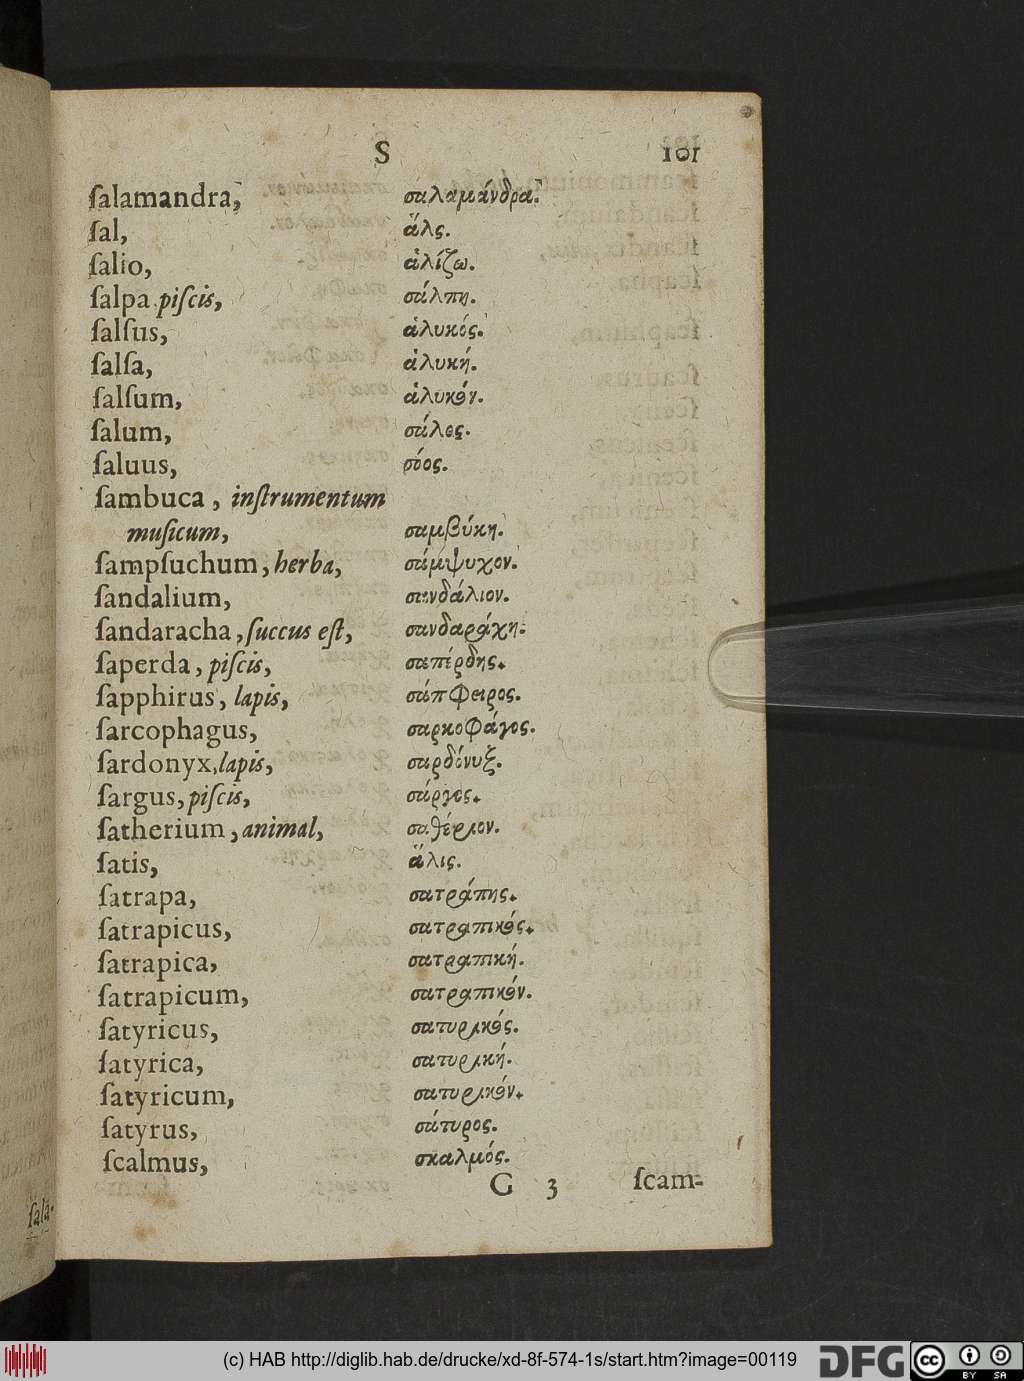 S 101
ſalamandra, σαλαμάνδρα.
ſal, ἅλς.
ſalio, ἁλίζω.
ſalpa piſcis, σάλπη.
ſalſus, ἁλυκός.
ſalſa, ἁλυκή.
ſalſum, ἁλυκόν.
ſalum, σάλος.
ſaluus, σόος.
ſambuca, inſtrumentum
muſicum, σαμβύκη.
ſampſuchum, herba, σάμψυχον.
ſandalium, σανδάλιον.
ſandaracha, ſuccus eſt, σανδαράχη.
ſaperda, piſcis, σαπέρδης.
ſapphirus, lapis, σάπφειρος.
ſarcophagus, σαρκοφάγος.
ſardonyx, lapis, σαρδόνυξ.
ſargus, piſcis, σάργος.
ſatherium, animal, σαθέριον.
ſatis, ἅλις.
ſatrapa, σατράπης.
ſatrapicus, σατραπικός.
ſatrapica, σατραπική.
ſatrapicum, σατραπικόν.
ſatyricus, σατυρικός.
ſatyrica, σατυρική.
ſatyricum, σατυρικόν.
ſatyrus, σάτυρος.
ſcalmus, σκαλμός.
G 3 ſcam-
ſala-
(c) HAB http://diglib.hab.de/drucke/xd-8f-574-1s/start.htm?image=00119
DFG
cc BY SA